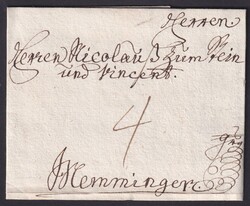 Herren
Herren Nicolauß Zum Stein
und Vincent.
4
Memmingen